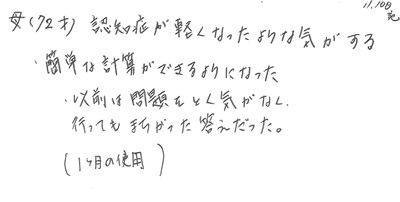 11.108
母(72才) 認知症が軽くなったような気がする
・簡単な計算ができるようになった
・以前は問題をとく気がなく、
行ってもまちがった答えだった。
(1ヶ月の使用)